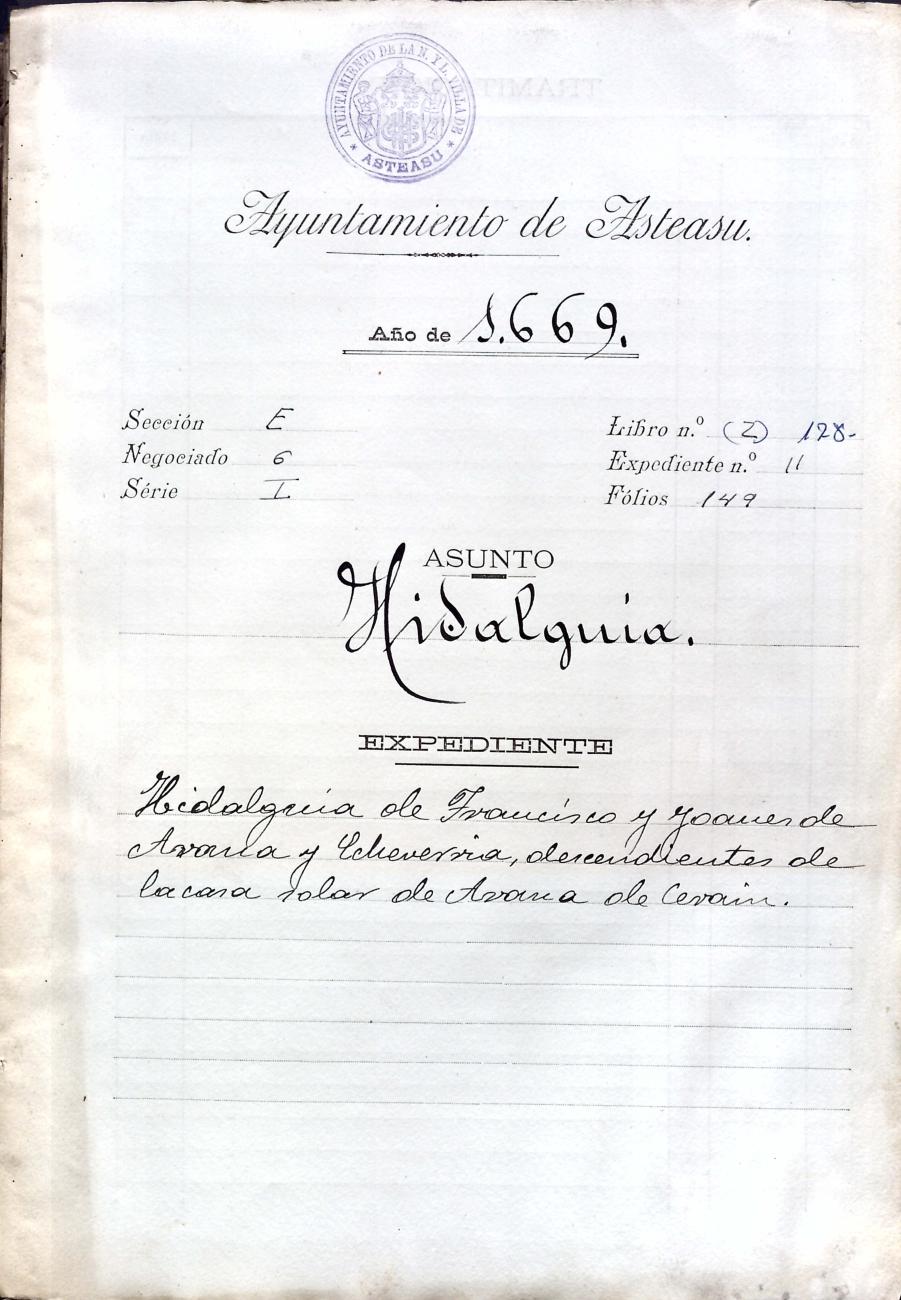 AYUNTAMIENTO DE LA N. Y L. VILLA DE
* ASTEASU *
Ayuntamiento de Asteasu.
Año de 1.669.
Sección E
Libro n.º (2) 128-
Negociado 6
Expediente n.º 11
Série I
Fólios 149
ASUNTO
Hidalguia.
EXPEDIENTE
Hidalguia de Francisco y Joanes de
Arana y Echeverria, descendientes de
la casa solar de Arana de Cerain.